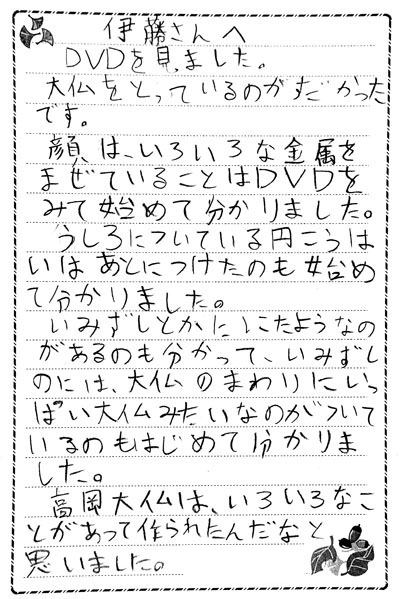 伊藤さんへ
DVDを見ました。
大仏をとっているのがすごかった
です。
顔は、いろいろな金属を
まぜていることはDVDを
みて始めて分かりました。
うしろについている円こうはい
いはあとにつけたのも始め
て分かりました。
いみずしとかににたようなの
があるのも分かって、いみずし
のには、大仏のまわりにいっ
ぱい大仏みたいなのがついて
いるのもはじめて分かりま
した。
高岡大仏は、いろいろなこ
とがあって作られたんだなと
思いました。